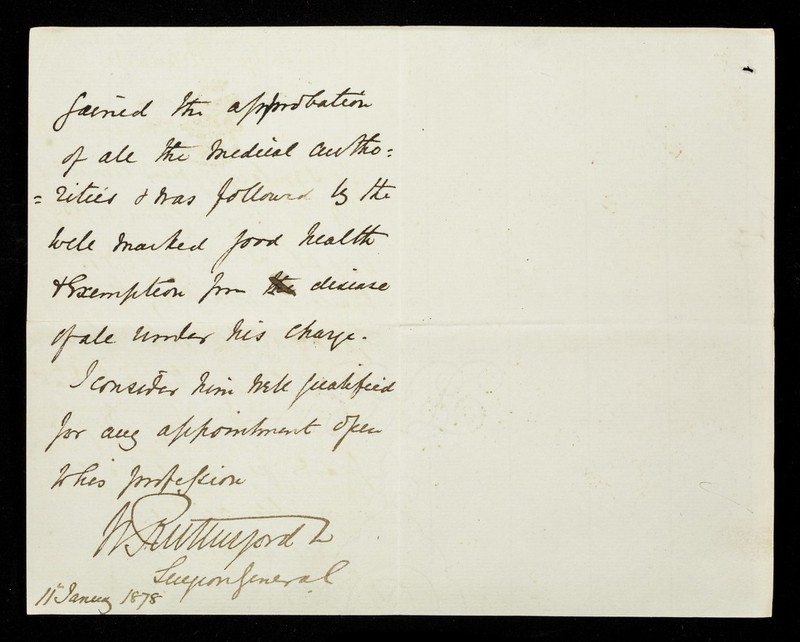 gained the approbation
of all the Medical Autho=
=rities & was followed by the
well marked good health
& Exemption from the disease
of all under his charge.
I consider him well qualified
for any appointment open
to his profession
W Rutherford
Surgeon General
11th January 1878